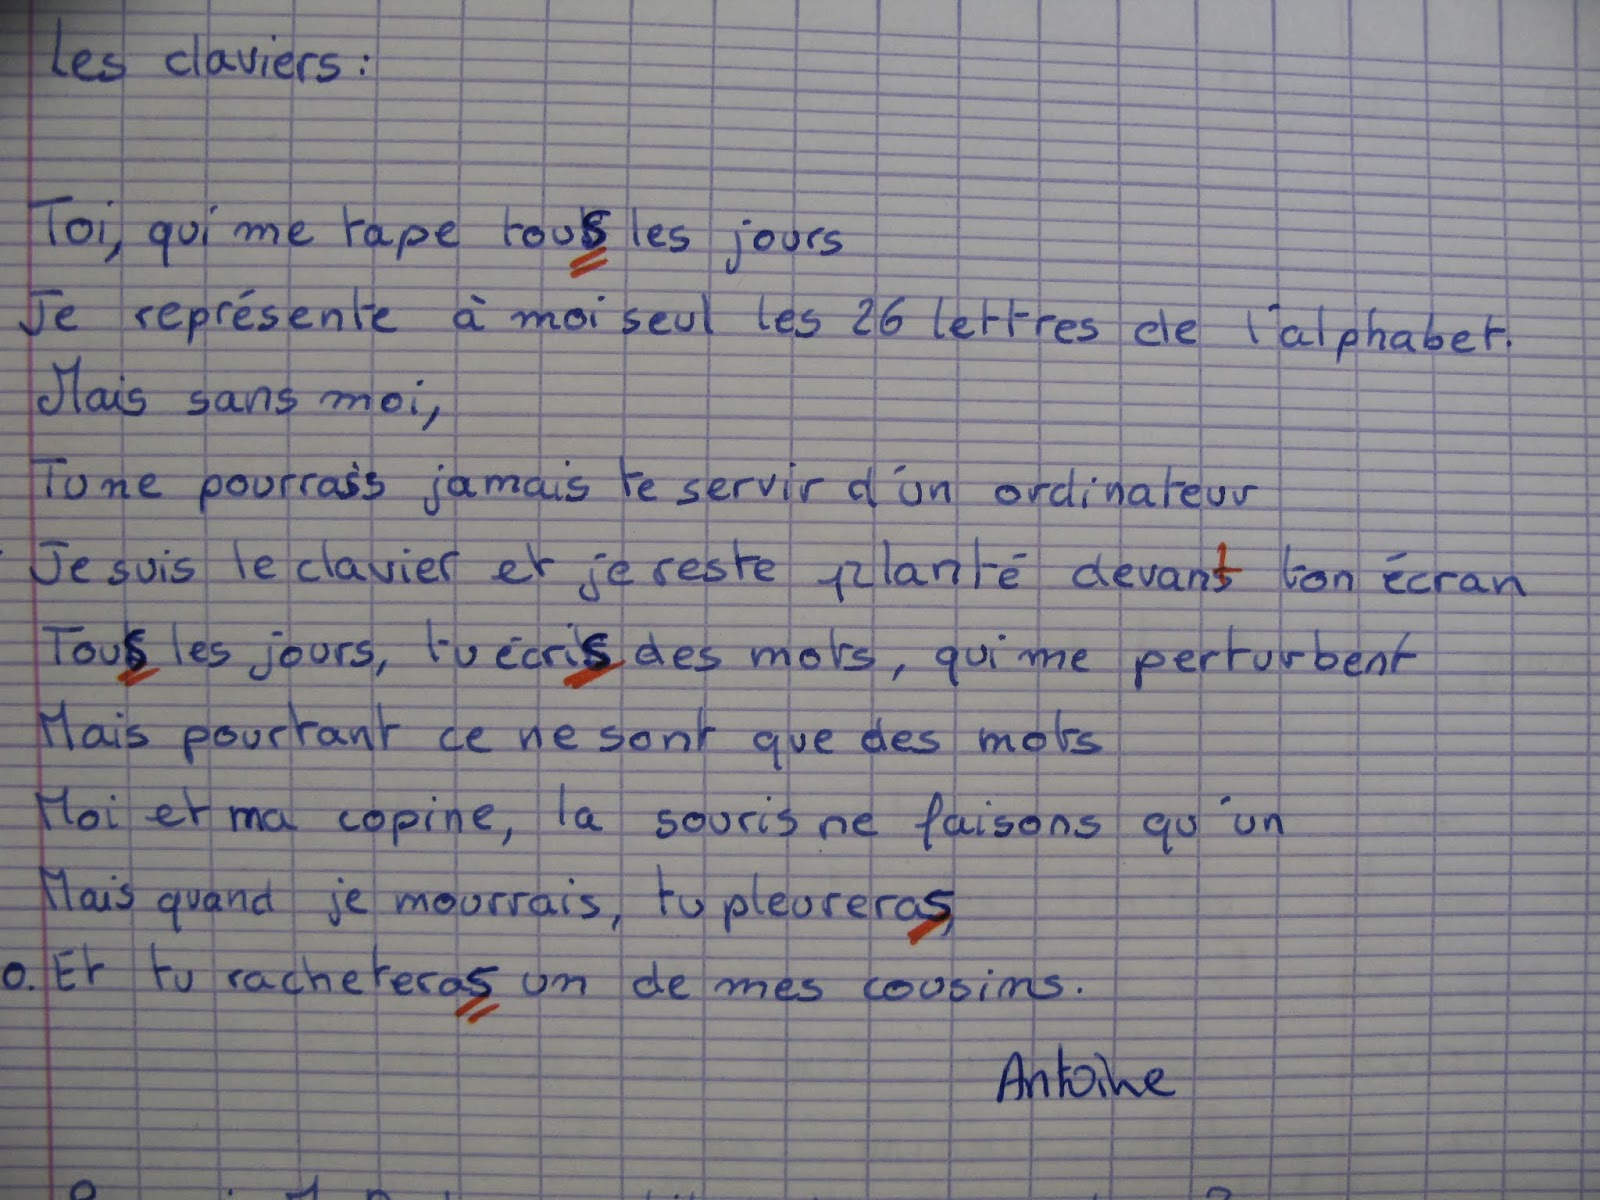 Les claviers :
Toi, qui me tape tous les jours
Je représente à moi seul les 26 lettres de l'alphabet.
Mais sans moi,
Tu ne pourrais jamais te servir d'un ordinateur
Je suis le clavier et je reste planté devant ton écran
Tous les jours, tu écris des mots, qui me perturbent
Mais pourtant ce ne sont que des mots
Moi et ma copine, la souris ne faisons qu'un
Mais quand je mourrais, tu pleureras,
o. Et tu racheteras un de mes cousins.
Antoine